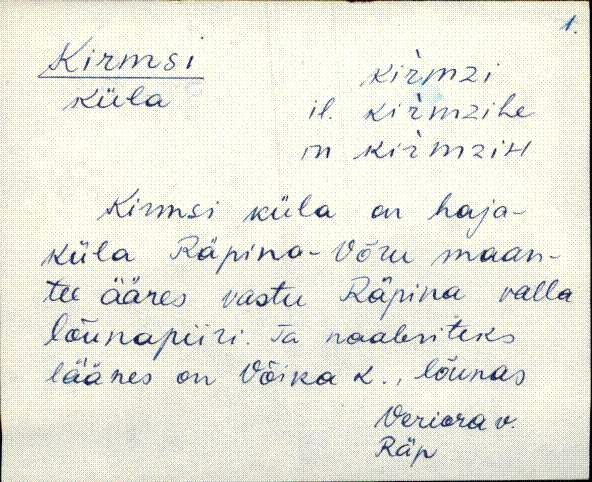 1.
Kirmsi
küla
kìrmzi
il. kìrmzihe
in kìrmziH
Kirmsi küla on haja-
küla Räpina-Võru maan-
tee ääres vastu Räpina valla
lõunapiiri. Ta naabriteks
läänes on Võika k., lõunas
Veriora v.
Räp